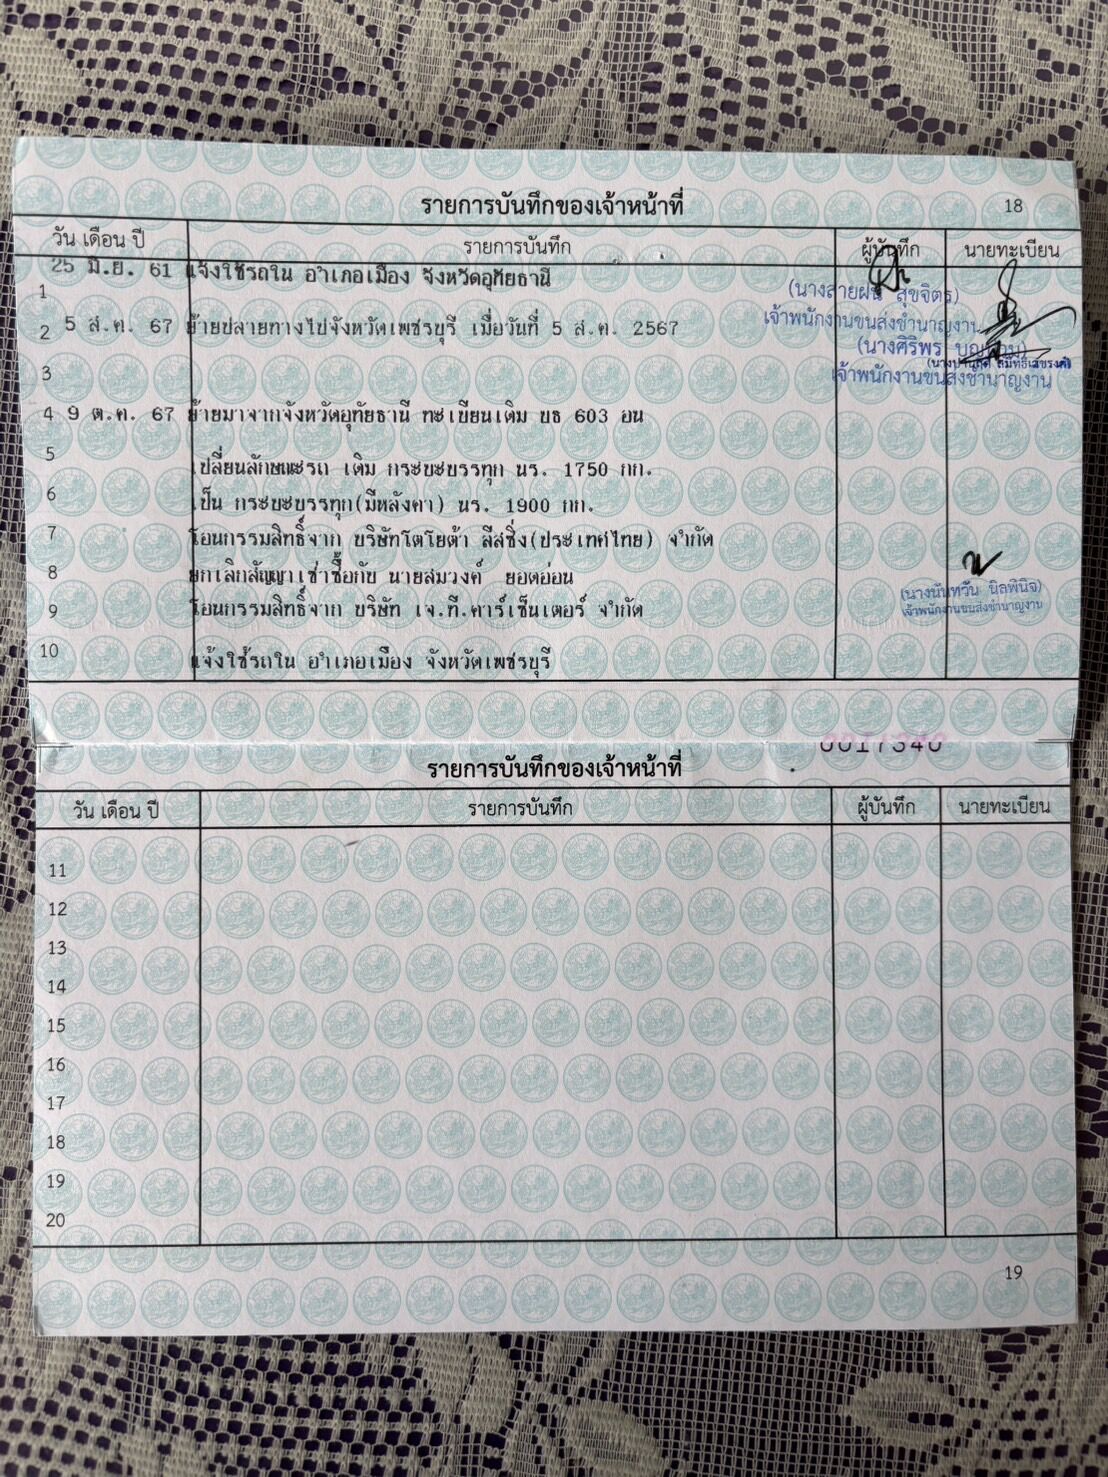 รายการบันทึกของเจ้าหน้าที่ 18
วัน เดือน ปี รายการบันทึก ผู้บันทึก นายทะเบียน
1 25 มิ.ย. 61 แจ้งใช้รถใน อำเภอเมือง จังหวัดอุทัยธานี
(นางสายฝน สุขจิตร)
เจ้าพนักงานขนส่งชำนาญงาน
2 5 ส.ค. 67 ย้ายปลายทางไปจังหวัดเพชรบุรี เมื่อวันที่ 5 ส.ค. 2567
(นางศิริพร
เจ้าพนักงานขนส่งชำนาญงาน
3
4 9 ต.ค. 67 ย้ายมาจากจังหวัดอุทัยธานี ทะเบียนเดิม บธ 603 อน
5 เปลี่ยนลักษณะรถ เดิม กระบะบรรทุก นร. 1750 กก.
6 เป็น กระบะบรรทุก(มีหลังคา) นร. 1900 กก.
7 โอนกรรมสิทธิ์จาก บริษัทโตโยต้า ลีสซิ่ง(ประเทศไทย) จำกัด
8 ยกเลิกสัญญาเช่าซื้อกับ นายสมวงค์ ยอดอ่อน
9 โอนกรรมสิทธิ์จาก บริษัท เจ.ที.คาร์เซ็นเตอร์ จำกัด
(นางนันทวัน นิลพินิจ)
เจ้าพนักงานขนส่งชำนาญงาน
10 แจ้งใช้รถใน อำเภอเมือง จังหวัดเพชรบุรี
0017340
รายการบันทึกของเจ้าหน้าที่
วัน เดือน ปี รายการบันทึก ผู้บันทึก นายทะเบียน
11
12
13
14
15
16
17
18
19
20
19